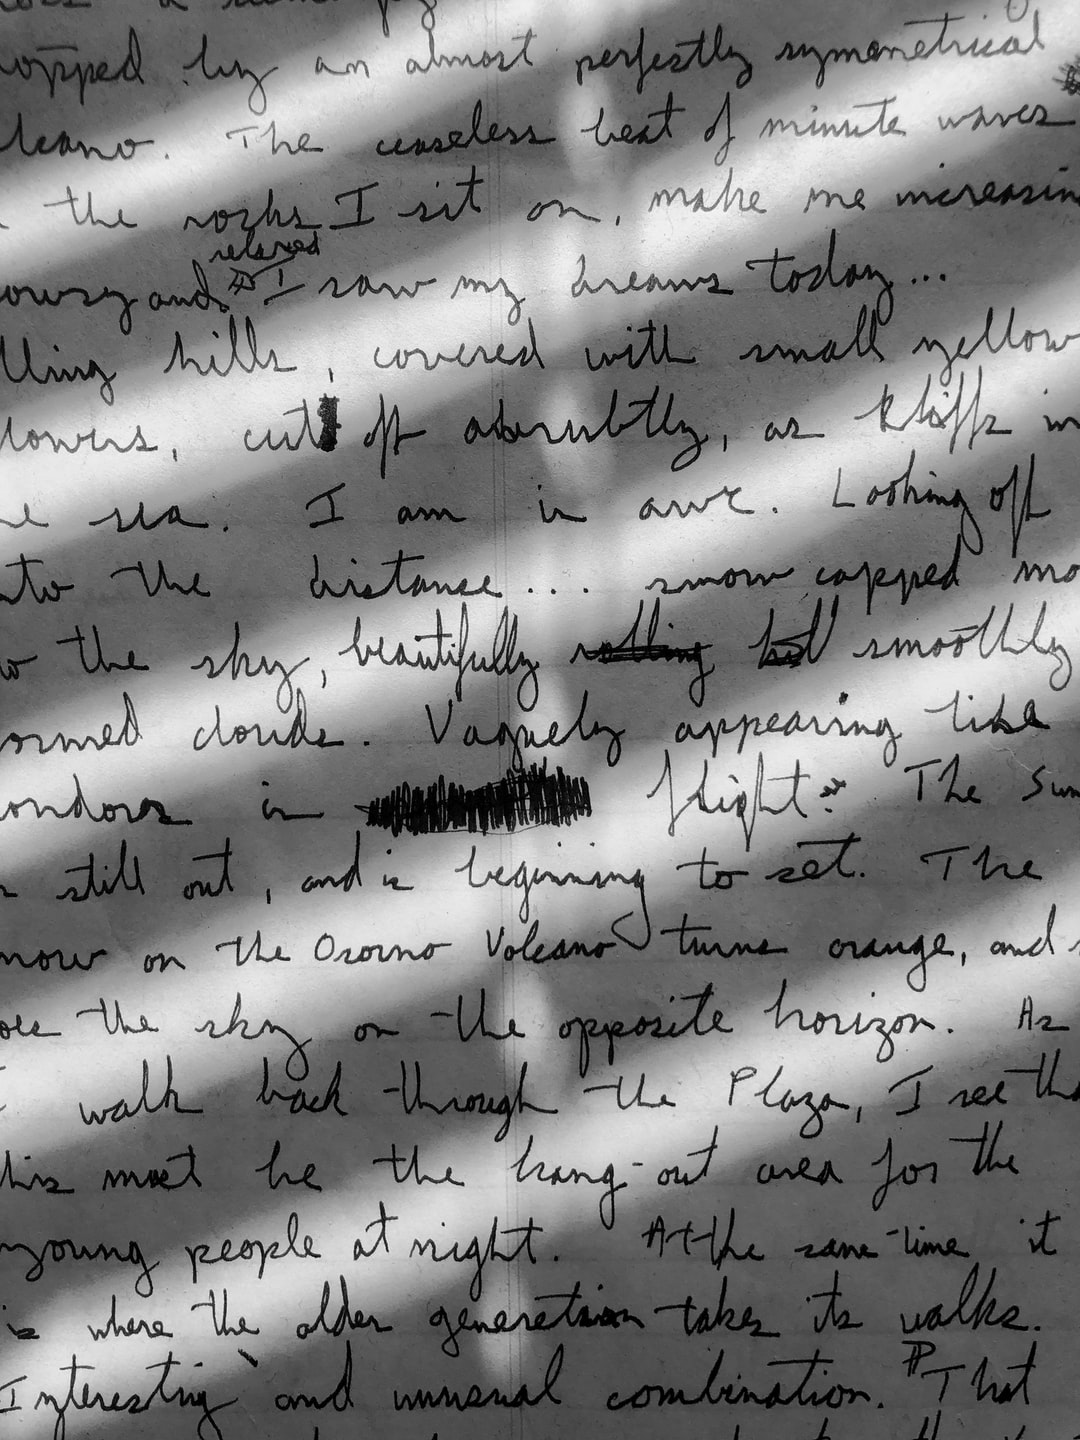 topped by an almost perfectly symmetrical
lcano. The ceaseless beat of minute waves
the rocks I sit on, make me increasin
relaxed
owsy and I saw my dreams today...
lling hills, covered with small yellow
lowers, cut off abruptly, as kliffs in
he sea. I am in awe. Looking off
nto the distance... snow capped mo
w the sky, beautifully rolling smoothly
ormed clouds. Vaguely appearing like
condors in flight. The Sun
still out, and is beginning to set. The
now on the Osorno Volcano turns orange, and
oes the sky on the opposite horizon. As
I walk back through the Plaza, I see tha
this must be the hang-out area for the
young people at night. At the same-time it
is where the older generation takes its walks.
Interesting and unusual combination. That